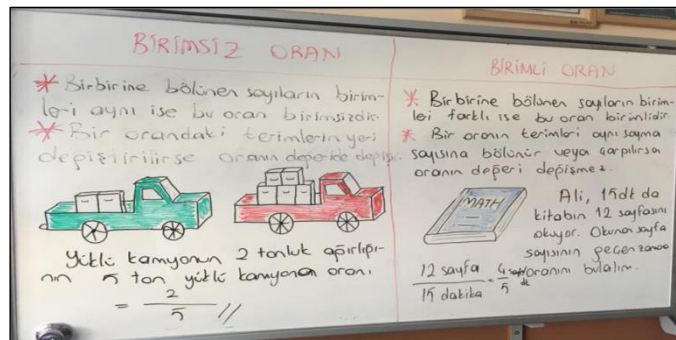 BİRİMSİZ ORAN
* Birbirine bölünen sayıların birim-
leri aynı ise bu oran birimsizdir.
* Bir orandaki terimlerin yeri
değiştirilirse oranın değeride değişir.
Yüklü kamyonun 2 tonluk ağırlığı-
nın 5 ton yüklü kamyona oranı
= 2/5 //
BİRİMLİ ORAN
* Birbirine bölünen sayıların birim-
leri farklı ise bu oran birimlidir.
* Bir oranın terimleri aynı sayma
sayısına bölünür veya çarpılırsa
oranın değeri değişmez.
MATH
Ali, 15dk da
kitabın 12 sayfasını
okuyor. Okunan sayfa
sayısının geçen zamana
oranını bulalım.
12 sayfa / 15 dakika = 4 / 5